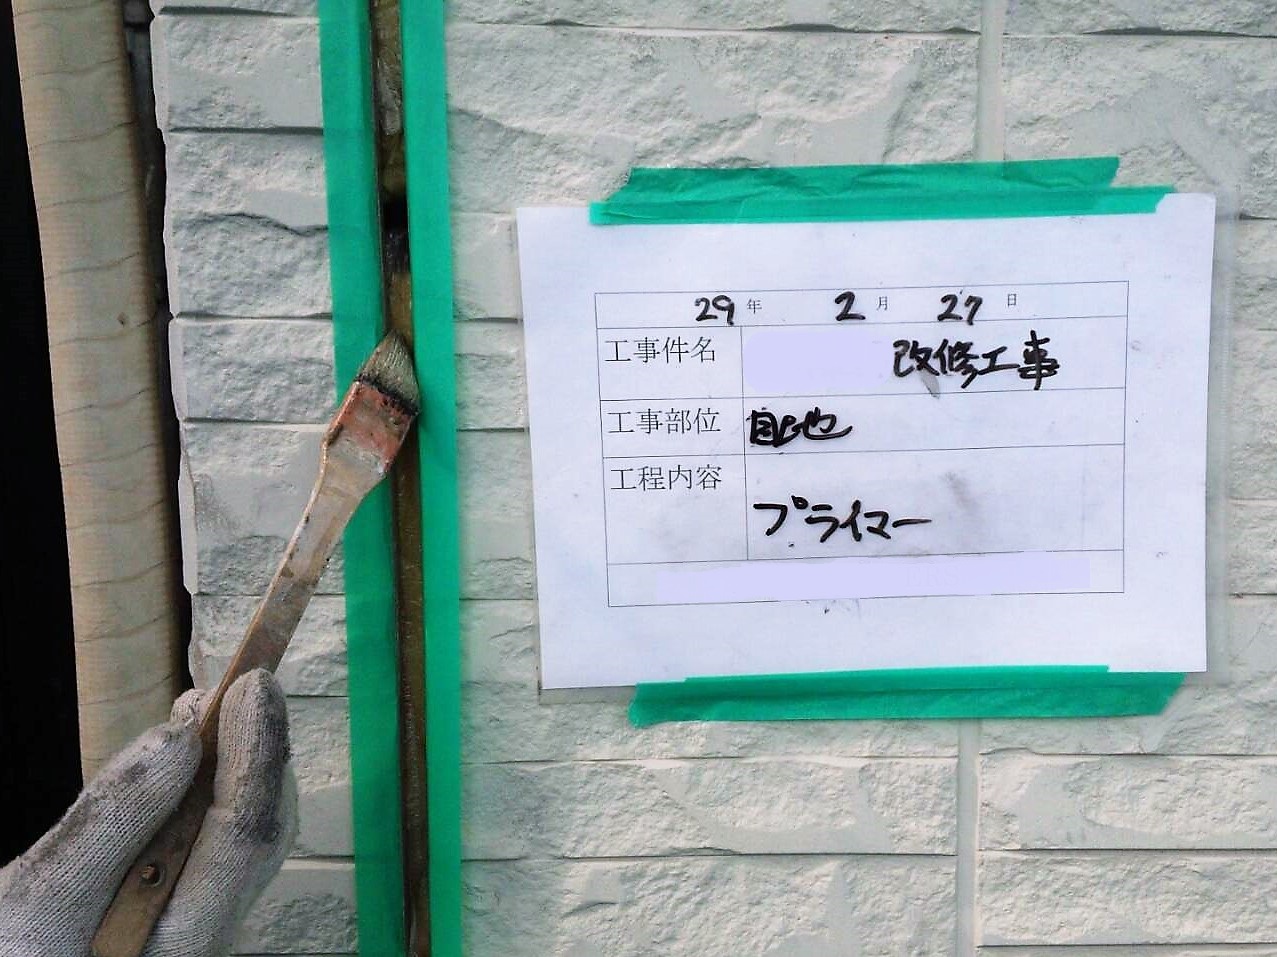 29年 2月 27日
工事件名 改修工事
工事部位 目地
工程内容
プライマー